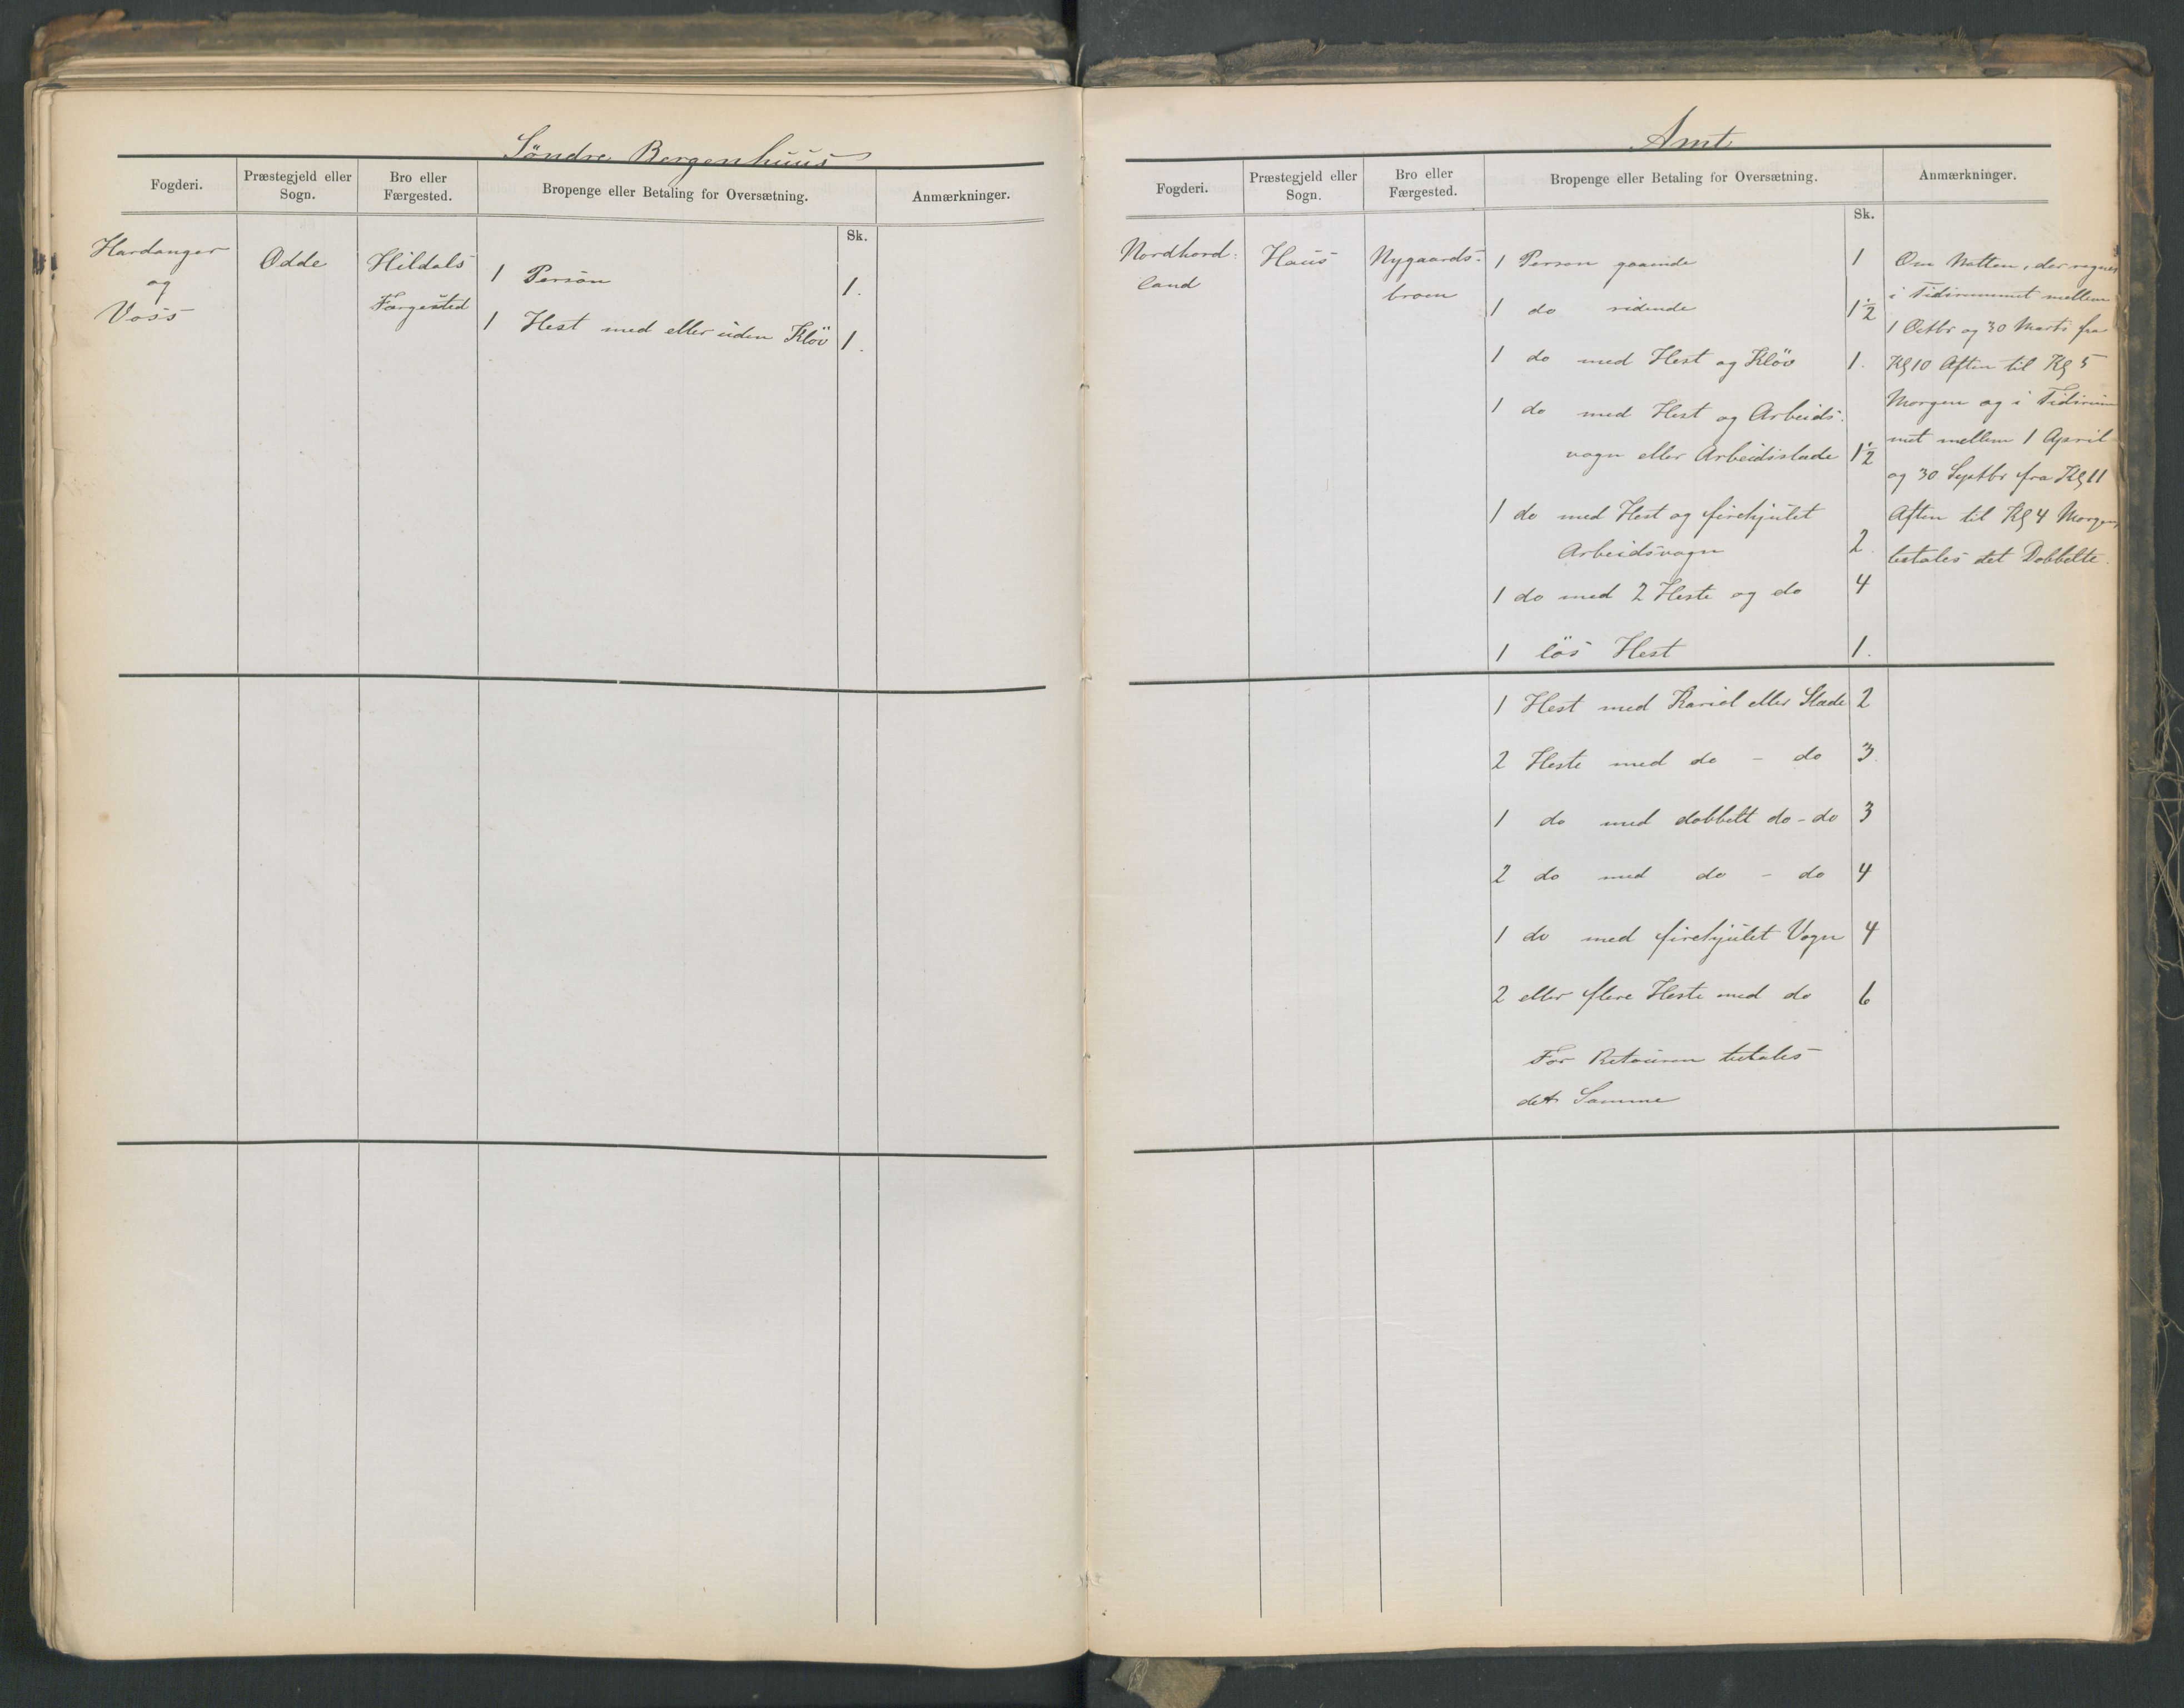 Söndre Bergenhuus
Fogderi.
Præstegjeld eller
Sogn.
Bro eller
Færgested.
Bropenge eller Betaling for Oversætning.
Anmærkninger.
Sk.
Hardanger
og
Voss
Odde
Hildals
Færgested
1 Person 1.
1 Hest med eller uden Kløv 1.
Amt
Fogderi.
Præstegjeld eller
Sogn.
Bro eller
Færgested.
Bropenge eller Betaling for Oversætning.
Anmærkninger.
Sk.
Nordhord-
land
Haus
Nygaards-
broen
1 Person gaaende 1
1 do ridende 1½
1 do med Hest og Kløv 1.
1 do med Hest og Arbeids-
vogn eller Arbeidsslæde 1½
1 do med Hest og firehjulet
Arbeidsvogn 2.
1 do med 2 Heste og do 4
1 løs Hest 1.
1 Hest med Kariol eller Slæde 2
2 Heste med do - do 3.
1 do med dobbelt do - do 3
2 do med do - do 4
1 do med firehjulet Vogn 4
2 eller flere Heste med do 6
For Retouren betales
det Samme
Om Natten, der regnes
i Tidsrummet mellem
1 Octbr og 30 Marts fra
Kl 10 Aften til Kl 5
Morgen og i Tidsrum
met mellem 1 April
og 30 Septbr fra Kl 11
Aften til Kl 4 Morgen,
betales det Dobbelte.